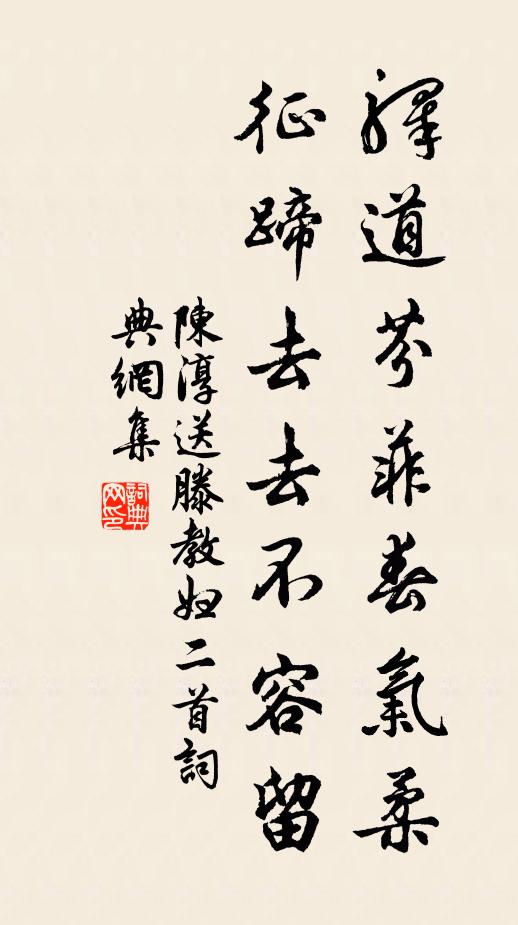 驛道芬菲春氣柔
征蹄去去不容留
陳淳送滕教妲二首詞
典網集
詞典網印